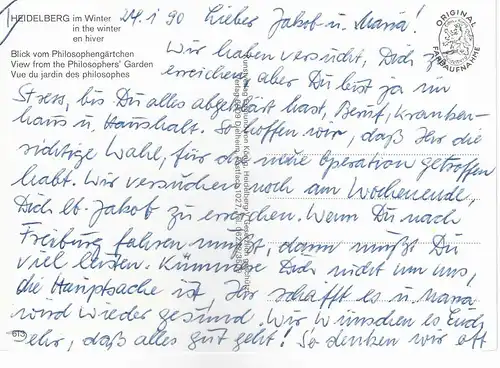 HEIDELBERG im Winter
in the winter
en hiver
Blick vom Philosophengärtchen
View from the Philosophers' Garden
Vue du jardin des philosophes
ORIGINAL
FARBAUFNAHME
24. 1 90 Lieber Jakob u. Maria!
Wir haben versucht, Dich zu
erreichen, aber Du bist ja im
Stress, bis Du alles abgeklärt hast, Beruf, Kranken-
haus u. Haushalt. So hoffen wir, daß Ihr die
richtige Wahl, für die neue Operation getroffen
habt. Wir versuchen noch am Wochenende,
Dich lb. Jakob zu erreichen. Wenn Du nach
Freiburg fahren mußt, dann mußt Du
viel leisten. Kümmere Dich nicht um uns,
die Hauptsache ist, Ihr schafft es u. Maria
wird wieder gesund. Wir wünschen es Euch
sehr, daß alles gut geht! So denken wir oft
613